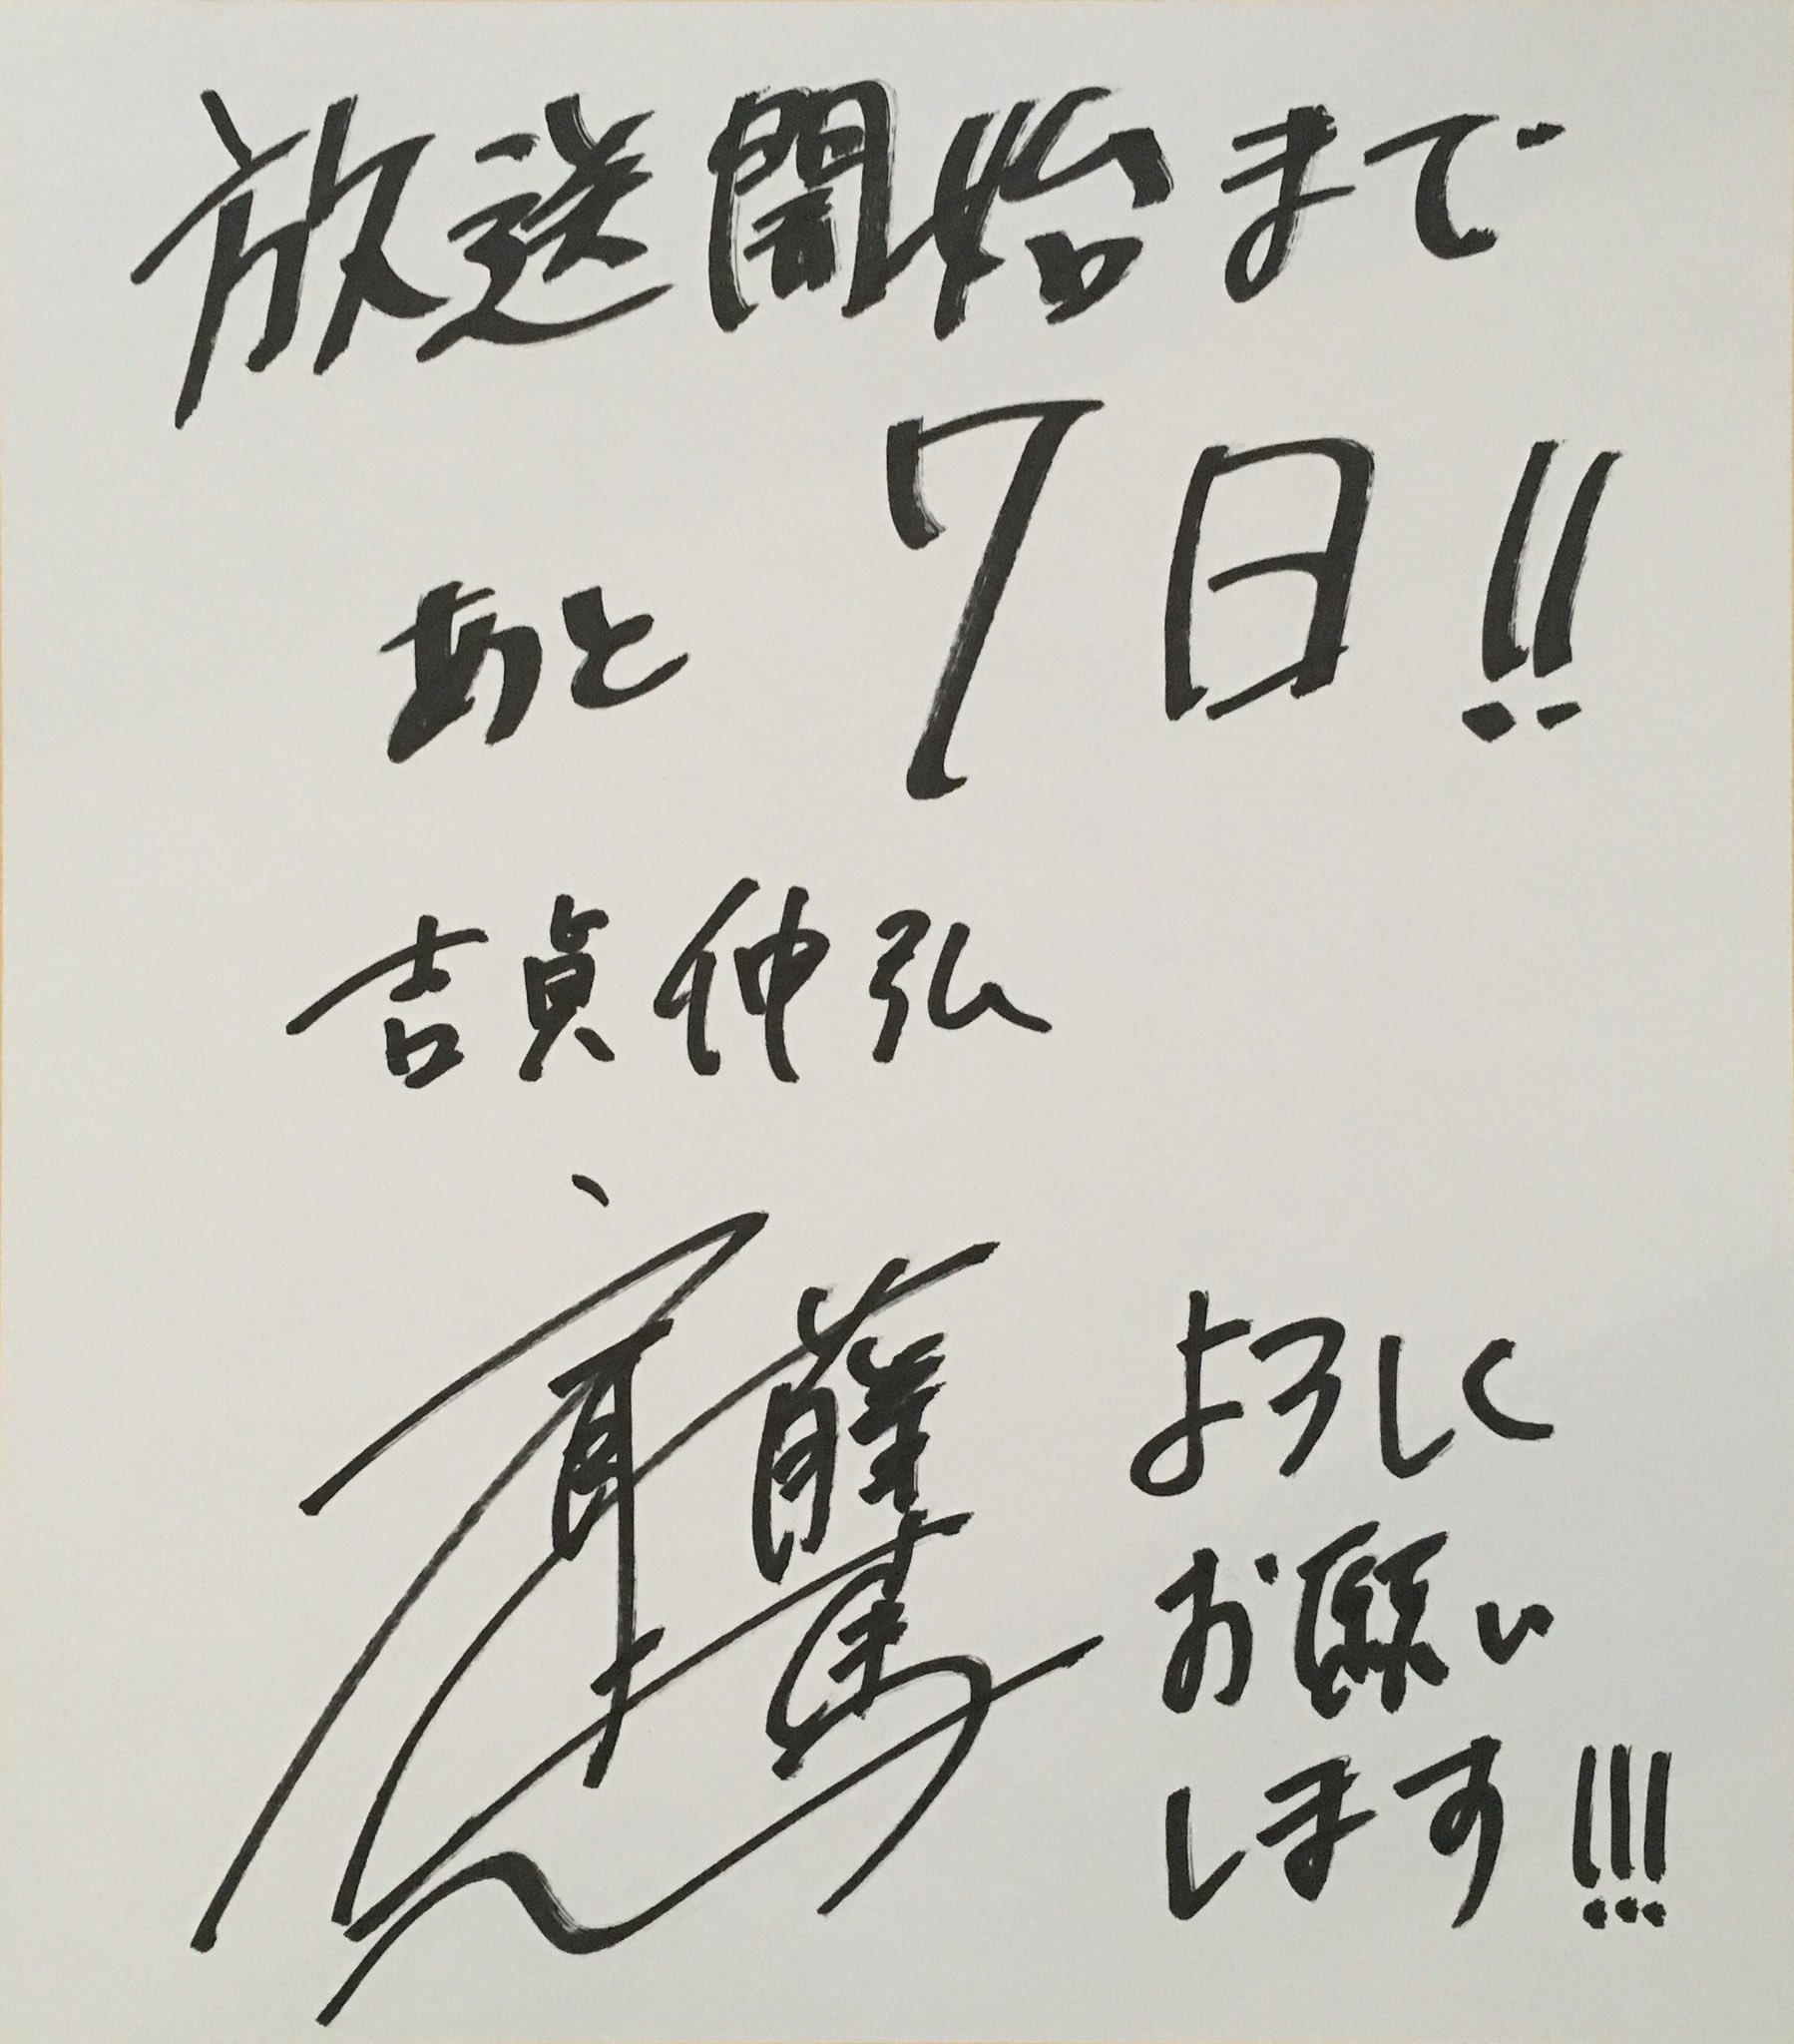 放送開始まで
あと 7日!!
吉貞伸弘
よろしく
お願い
します!!!